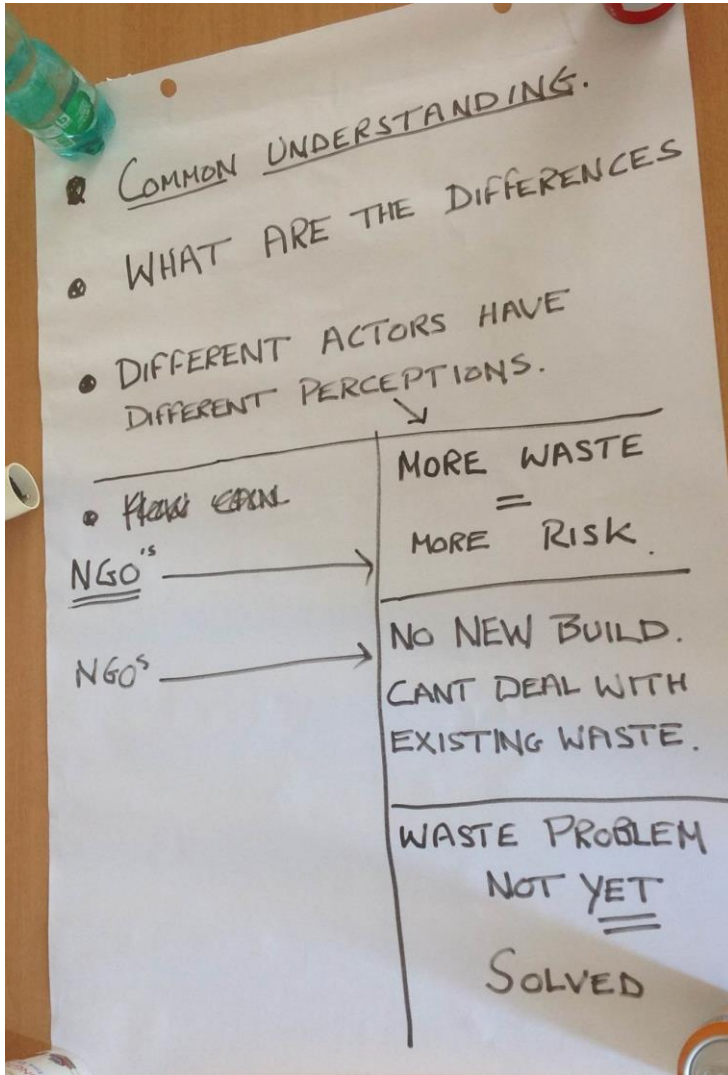 • COMMON UNDERSTANDING.
• WHAT ARE THE DIFFERENCES
• DIFFERENT ACTORS HAVE
DIFFERENT PERCEPTIONS.
MORE WASTE
=
MORE RISK.
NGO's
NO NEW BUILD.
NGOs
CANT DEAL WITH
EXISTING WASTE.
WASTE PROBLEM
NOT YET
SOLVED